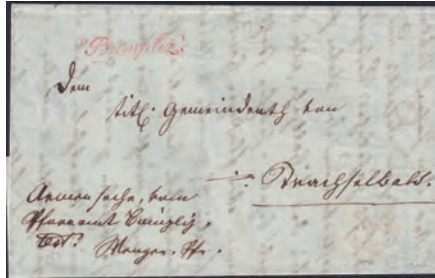 Bümpliz.
Dem
titl. Gemeindrath von
Drachselwald.
Armensache, vom
Pfarramt Bümpliz.
Pfr.